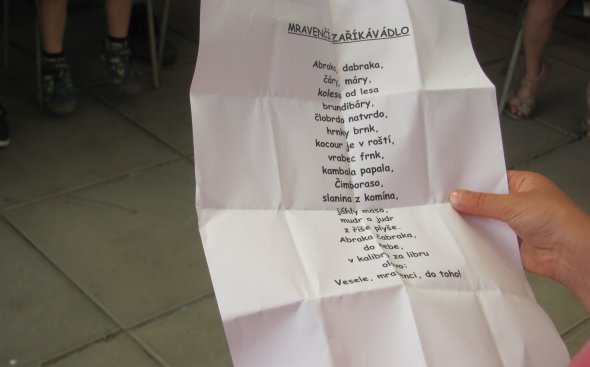 MRAVENČÍ ZAŘÍKÁVÁDLO
Abraka, dabraka,
čáry, máry,
kolesa od lesa
brundibáry,
člobrdo natvrdo,
hrnky brnk,
kocour je v roští,
vrabec frnk,
kambala papala,
Čimboraso,
slanina z komína,
jáhly maso,
mudr a judr
z říše plyše.
Abraka čabraka,
do bebe,
v kalibru za libru
olovo:
Vesele, mravenci, do toho!